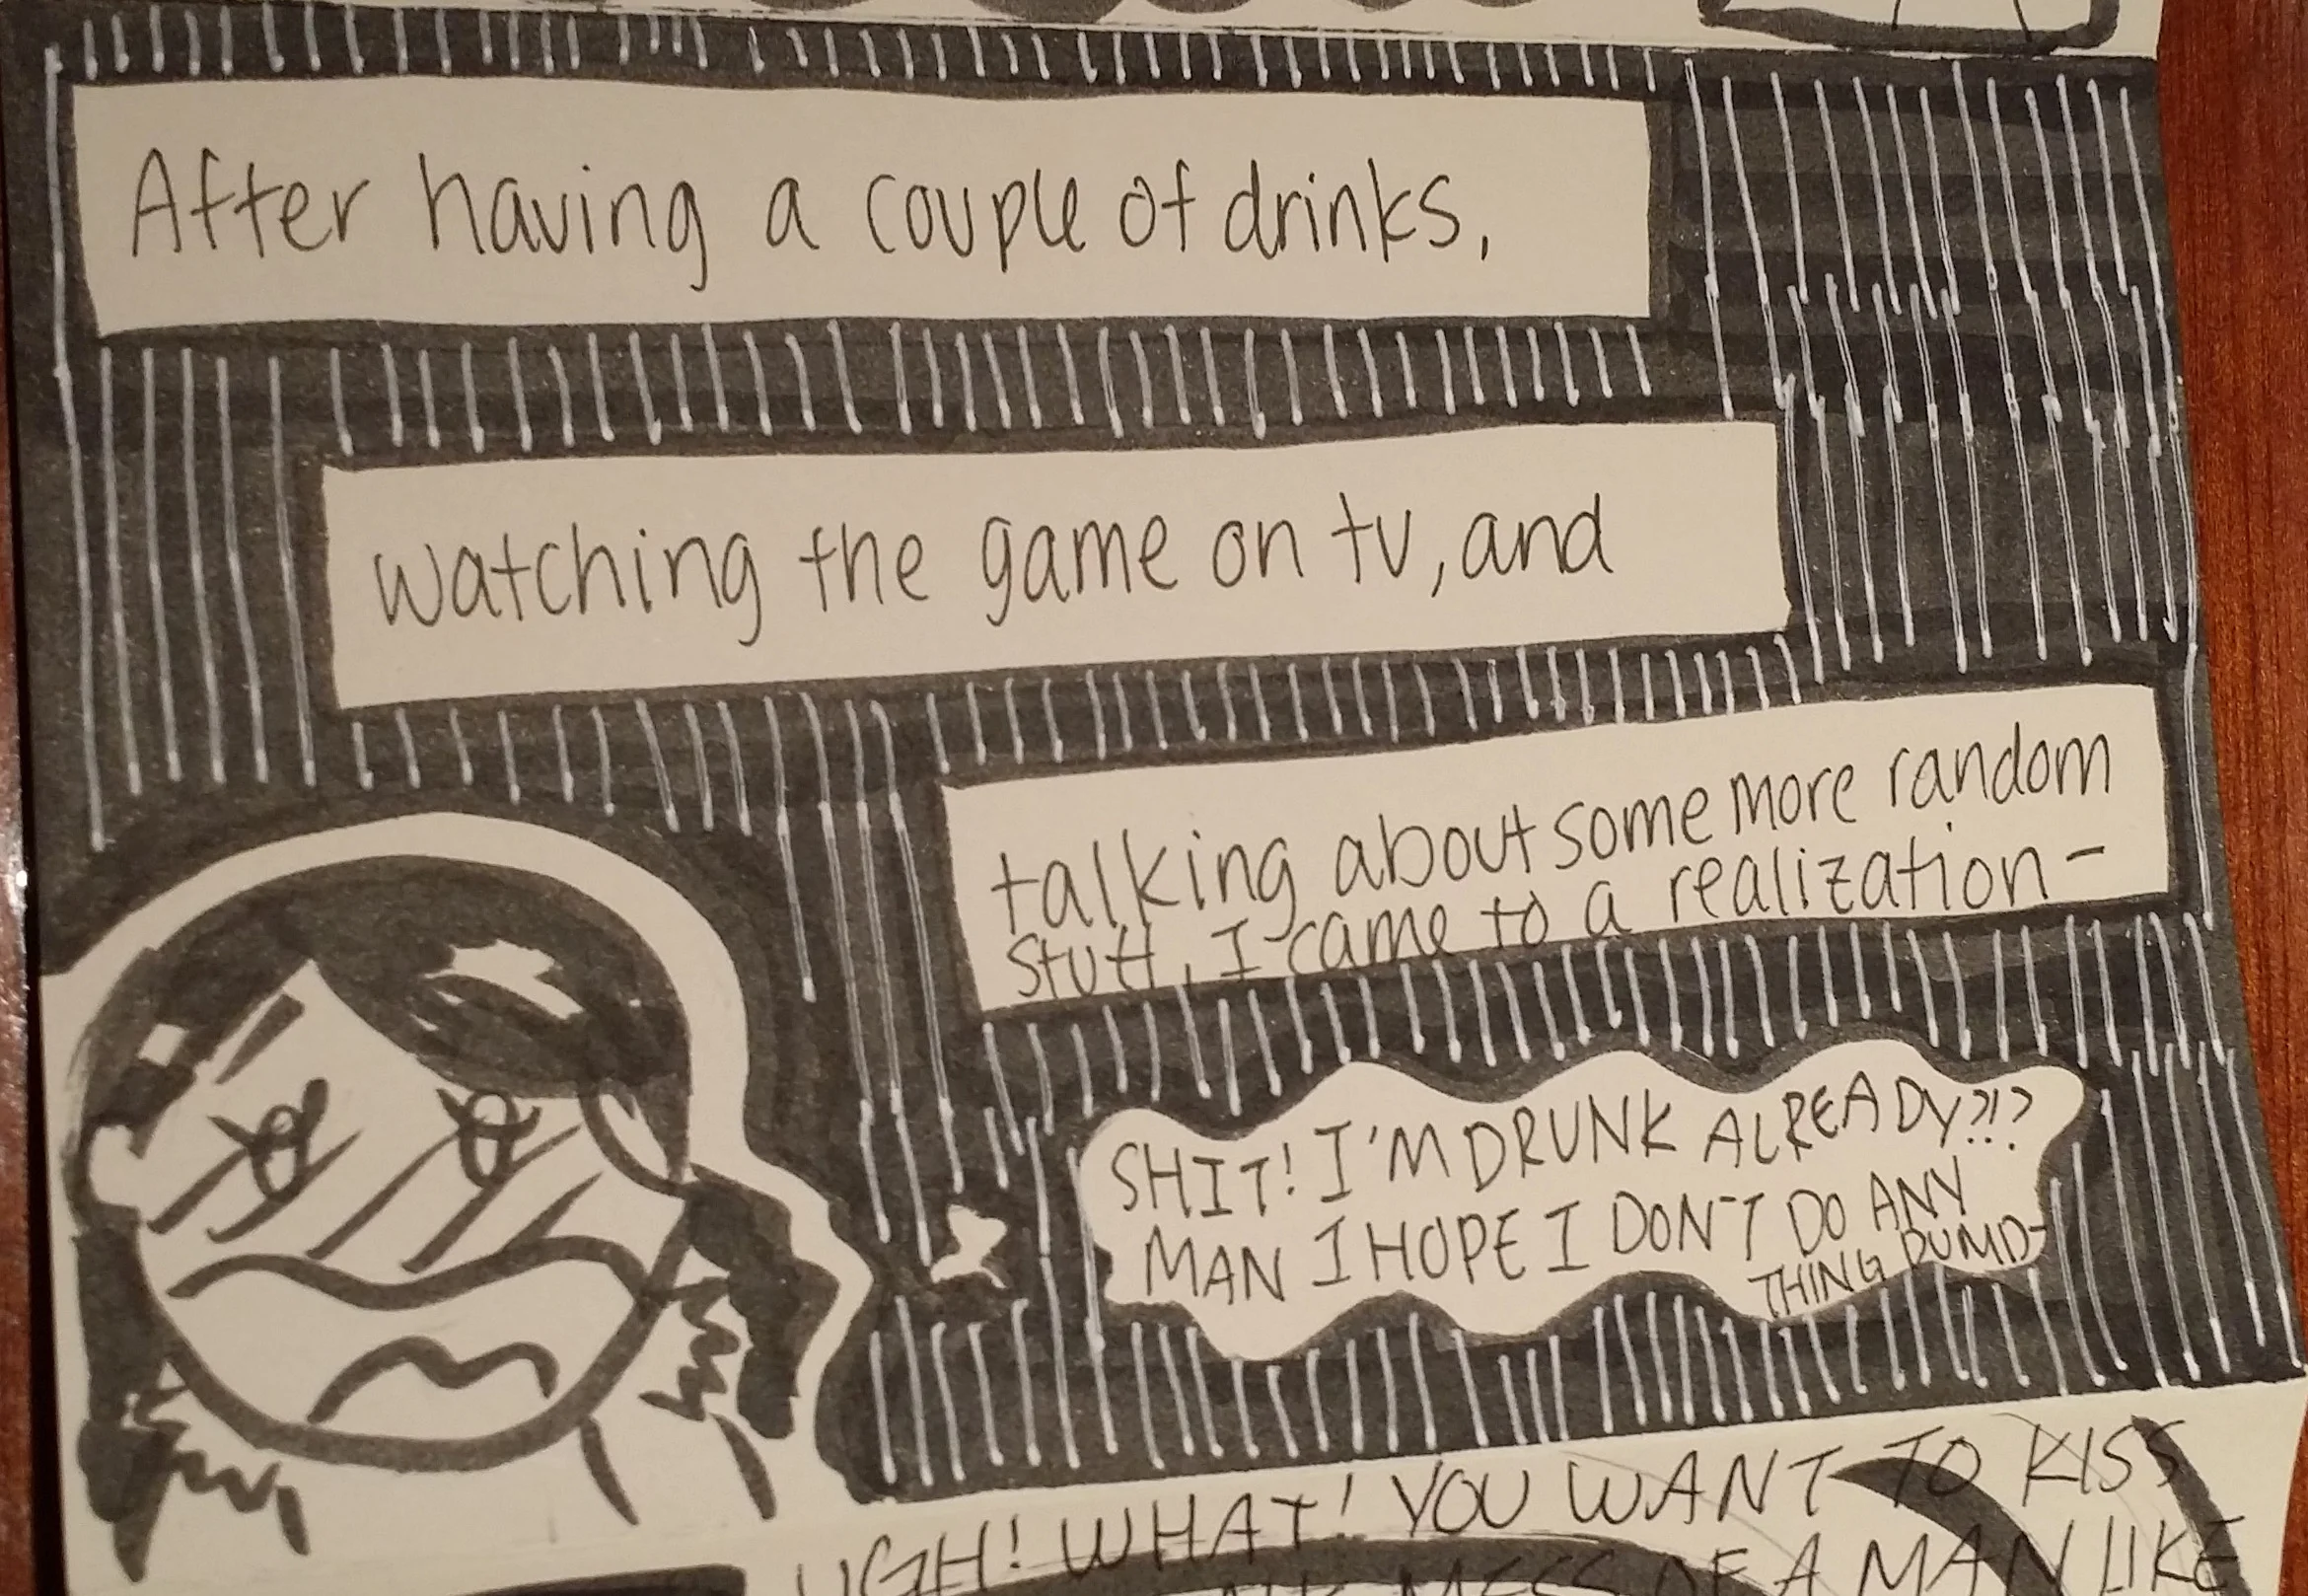 After having a couple of drinks,
watching the game on tv, and
talking about some more random
stuff, I came to a realization-
SHIT! I'M DRUNK ALREADY?!?
MAN I HOPE I DON'T DO ANY
THING DUMD-
UGH! WHAT! YOU WANT TO KISS
MESS OF A MAN LIKE